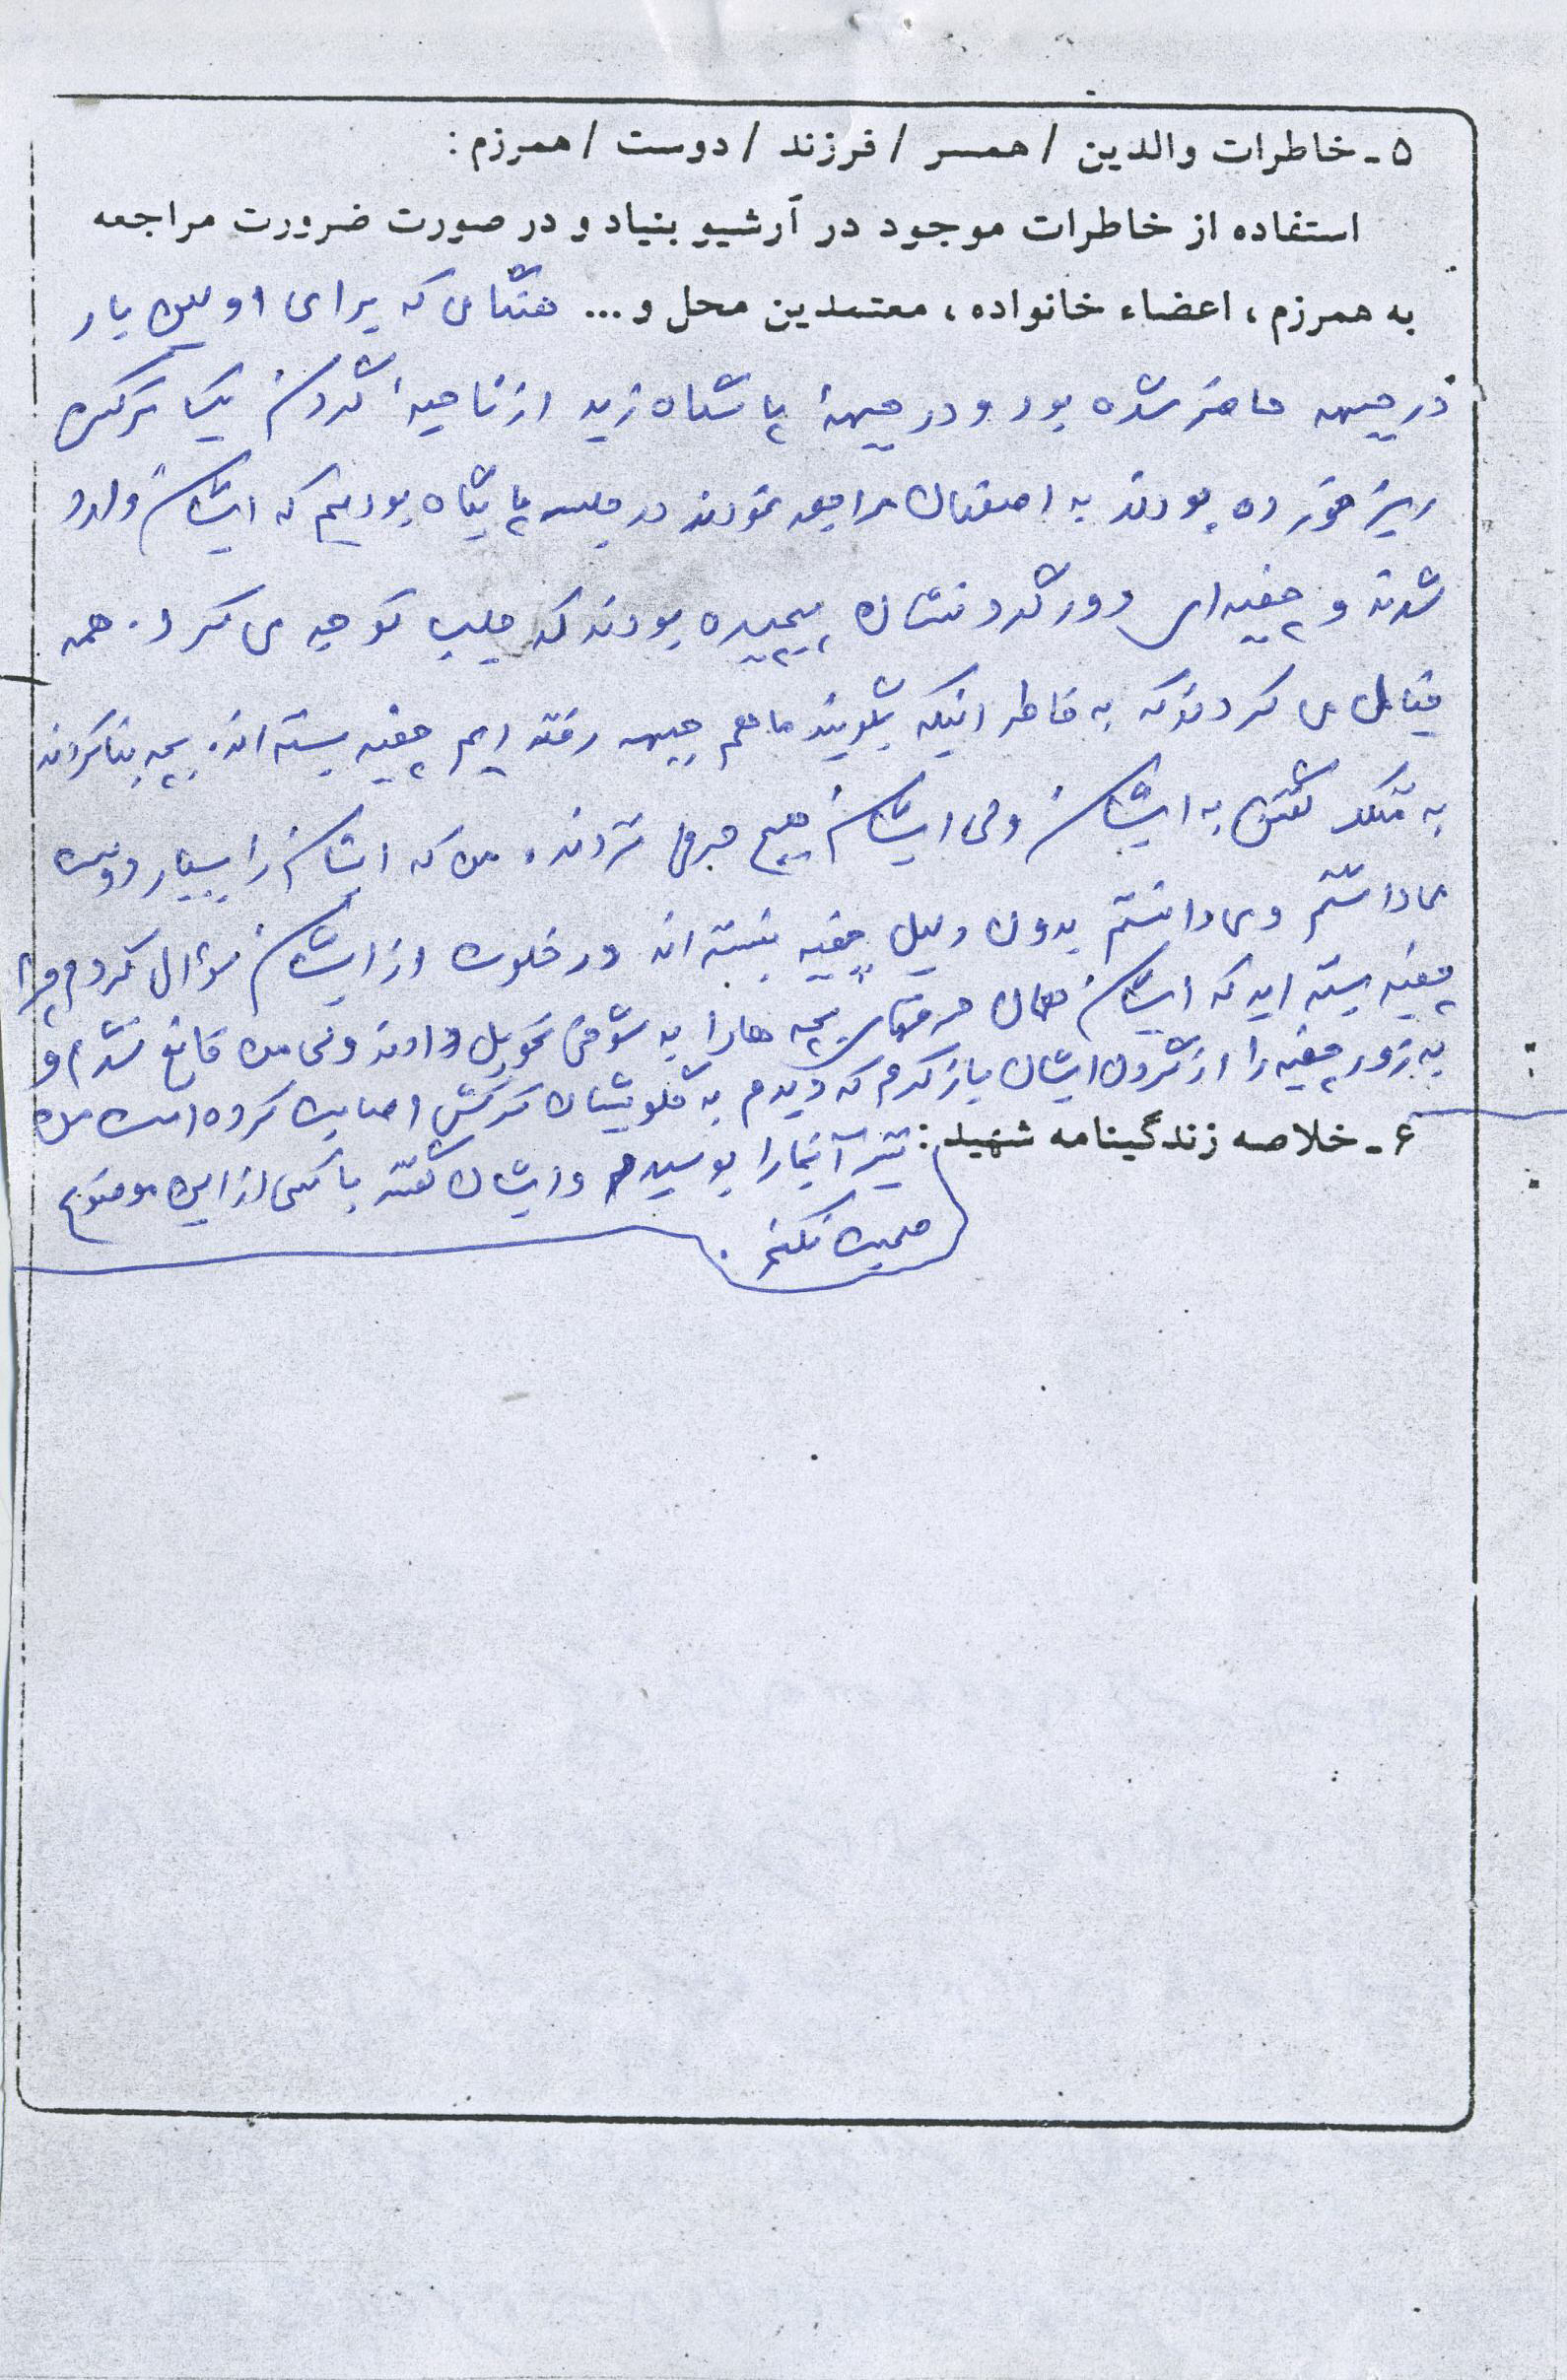 ۵ـ خاطرات والدین / همسر / فرزند / دوست / همرزم:
استفاده از خاطرات موجود در آرشیو بنیاد و در صورت ضرورت مراجعه
به همرزم، اعضاء خانواده، معتمدین محل و... هنگامی که برای اولین بار
در جبهه حاضر شده بود و در جبههٔ پاسگاه زید از ناحیهٔ گردن یک ترکش
ریز خورده بودند به اصفهان مراجعه نمودند در جلسه پایگاه بودیم که ایشان وارد
شدند و چفیه‌ای دور گردنشان پیچیده بودند که جلب توجه می کرد. همه
خیال می کردند که به خاطر اینکه بگویند ما هم جبهه رفته ایم چفیه بسته اند. بچه بنا کردند
به متلک گفتن به ایشان ولی ایشان هیچ حرفی نزدند. من که ایشان را بسیار دوست
می داشتم و می دانستم بدون دلیل چفیه نبسته اند در خلوت از ایشان سؤال کردم چرا
چفیه بسته اید که ایشان همان حرفهای بچه ها را به شوخی تحویل دادند ولی من قانع نشدم و
به زور چفیه را از گردن ایشان باز کردم که دیدم به گلویشان ترکش اصابت کرده است من
۶ـ خلاصه زندگینامه شهید: نیز آنجا را بوسیدم و ایشان گفتند با کسی از این موضوع
صحبت نکنم.